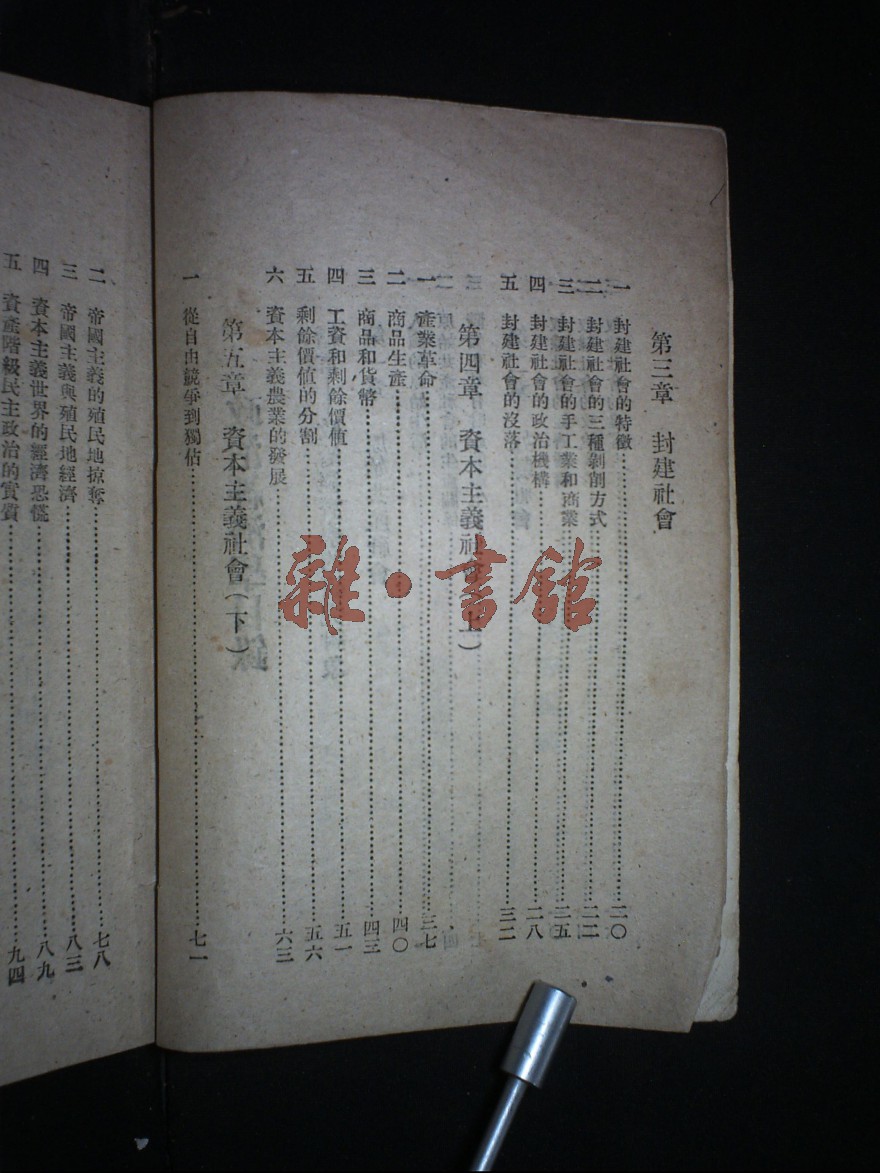 第三章 封建社會
一 封建社會的特徵……二〇
二 封建社會的三種剝削方式……二二
三 封建社會的手工業和商業……二五
四 封建社會的政治機構……二八
五 封建社會的沒落……三二
第四章 資本主義社會(上)
一 產業革命……三七
二 商品生產……四〇
三 商品和貨幣……四三
四 工資和剩餘價值……五一
五 剩餘價值的分割……五六
六 資本主義農業的發展……六三
第五章 資本主義社會(下)
一 從自由競爭到獨佔……七一
二 帝國主義的殖民地掠奪……七八
三 帝國主義與殖民地經濟……八三
四 資本主義世界的經濟恐慌……八九
五 資產階級民主政治的實質……九四
雜·書館